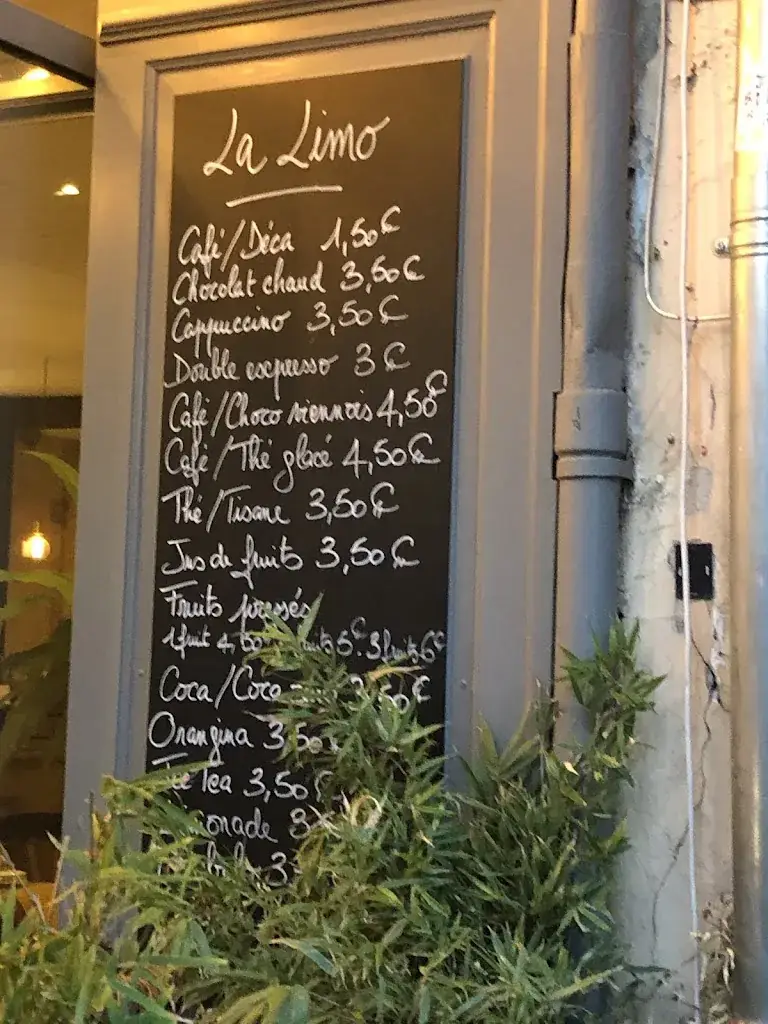 La Limo
Café/Déca 1,50€
Chocolat chaud 3,50€
Cappuccino 3,50€
Double espresso 3€
Café/Choco viennois 4,50€
Café/Thé glacé 4,50€
Thé/Tisane 3,50€
Jus de fruits 3,50€
Fruits pressés
1 fruit 5€ 3 fruits 6€
Coca/Coca 3,50€
Orangina 3,50
Tea 3,50€
3
3